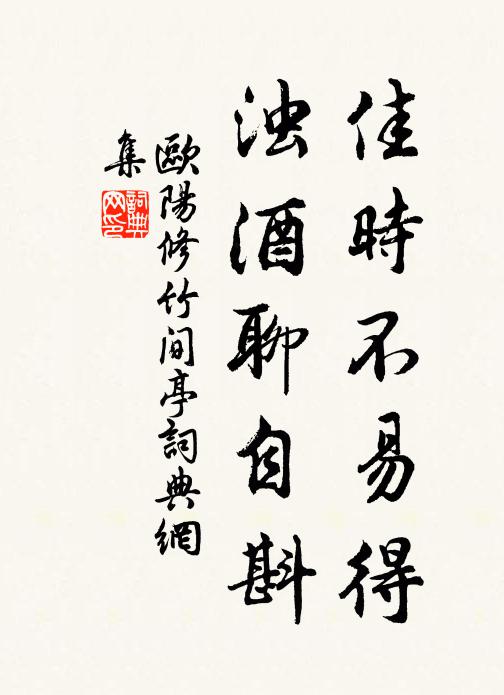 佳時不易得
浊酒聊自斟
歐陽修竹间亭詞典網
集
詞典
网印